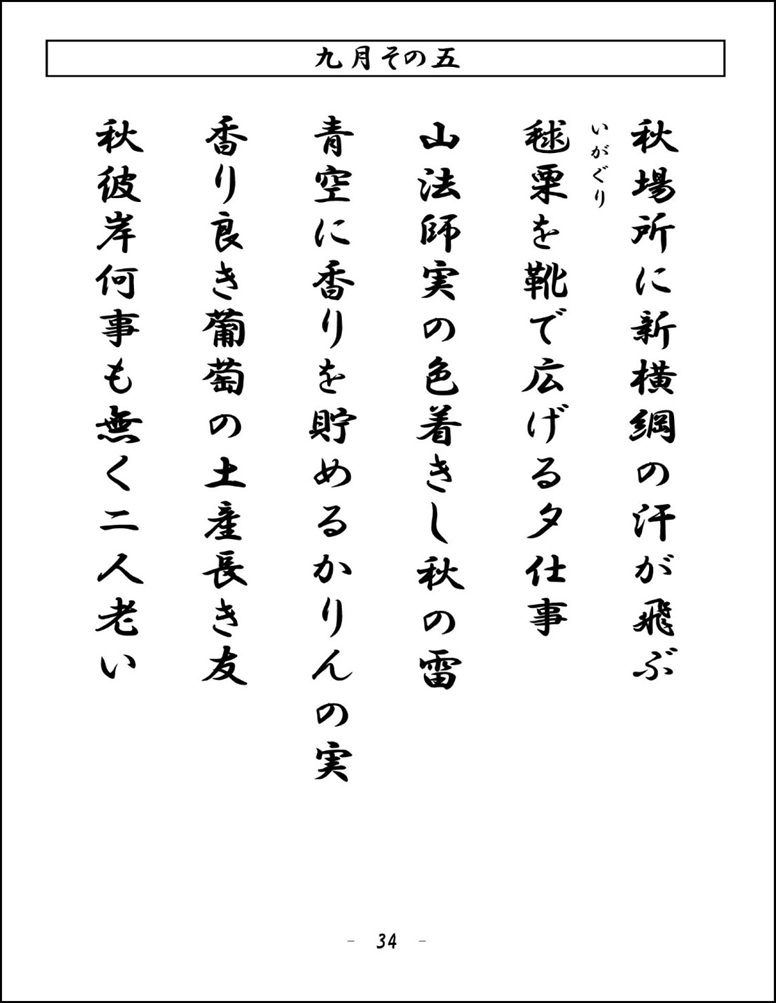 九月その五
秋場所に新横綱の汗が飛ぶ
いがぐり
毬栗を靴で広げる夕仕事
山法師実の色着きし秋の雷
青空に香りを貯めるかりんの実
香り良き葡萄の土産長き友
秋彼岸何事も無く二人老い
- 34 -